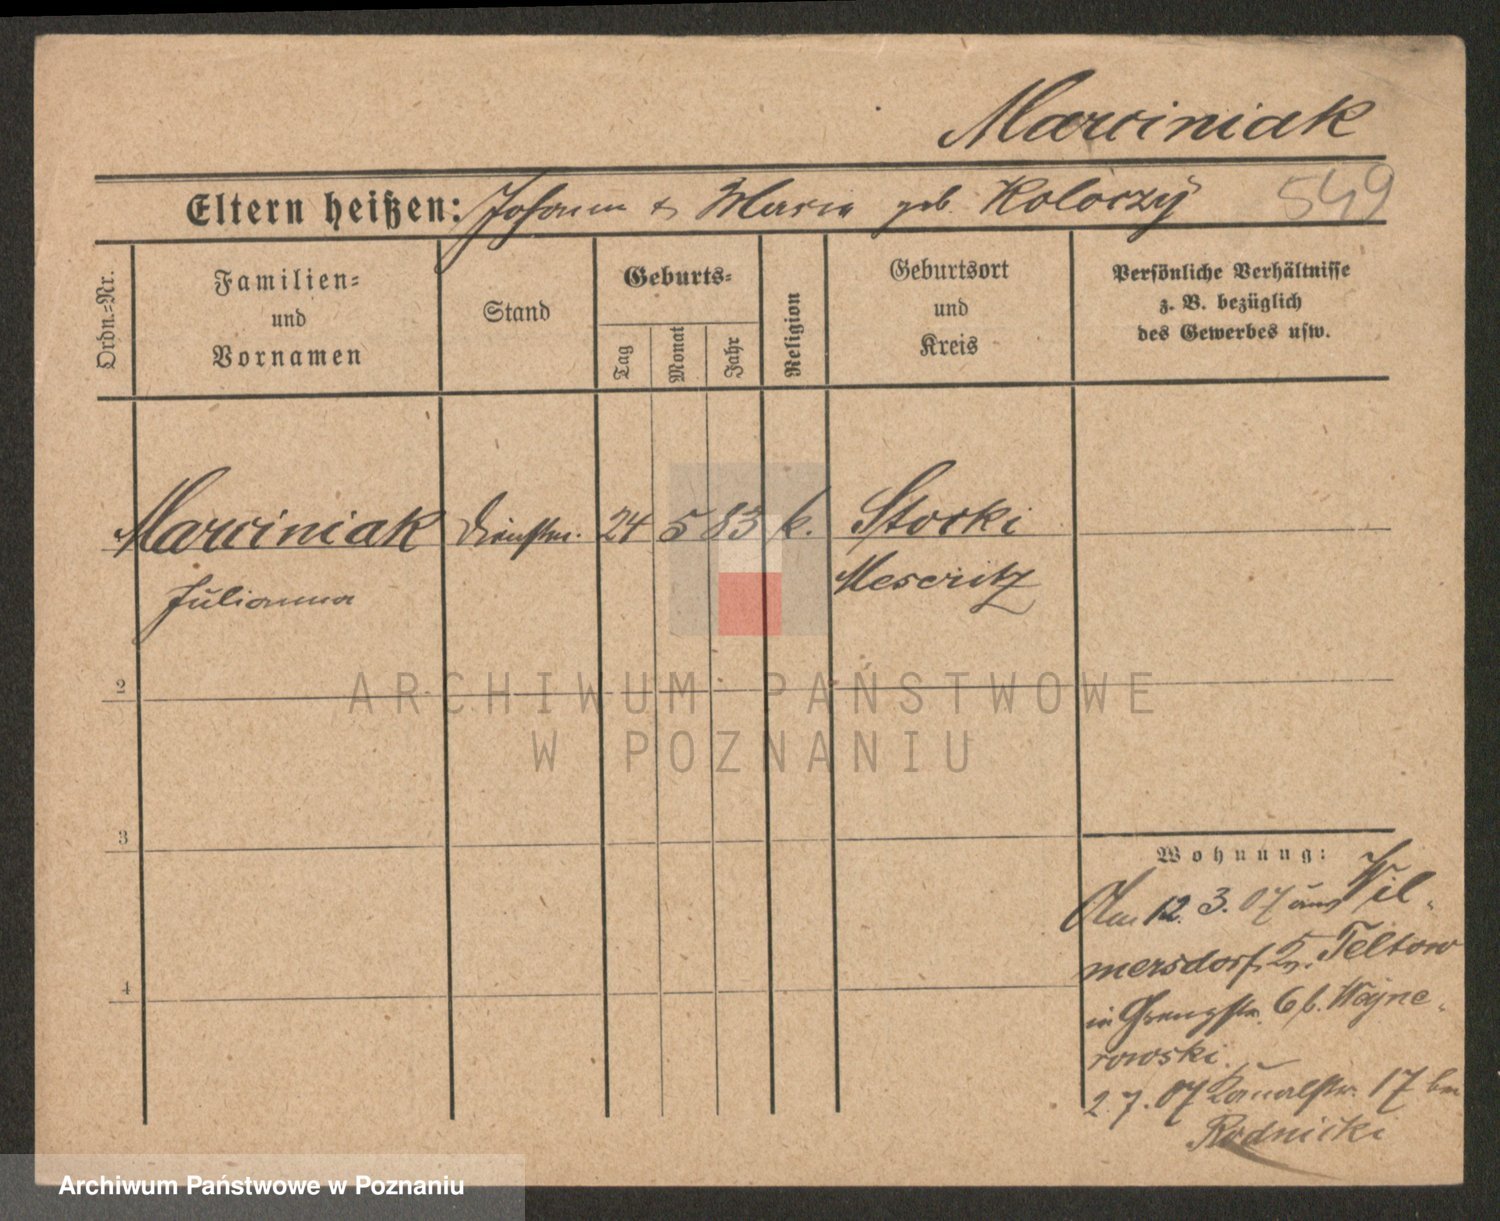 Marciniak
Eltern heißen: Johann & Maria geb. Koloczÿ 549
Ordn.-Nr.
Familien-
und
Vornamen
Stand
Geburts-
Tag
Monat
Jahr
Religion
Geburtsort
und
Kreis
Persönliche Verhältnisse
z. B. bezüglich
des Gewerbes usw.
Marciniak Dienstm. 24 5 83 k. Stocki
Julianna Meseritz
2
ARCHIWUM PAŃSTWOWE
W POZNANIU
3
Wohnung:
Am 12. 3. 07 aus Wil-
mersdorf, Kr. Teltow
in Grenzstr. 6 b. Wayne-
rowski.
4
2. 7. 07 Kanalstr. 17 bei
Rodnicki
Archiwum Państwowe w Poznaniu